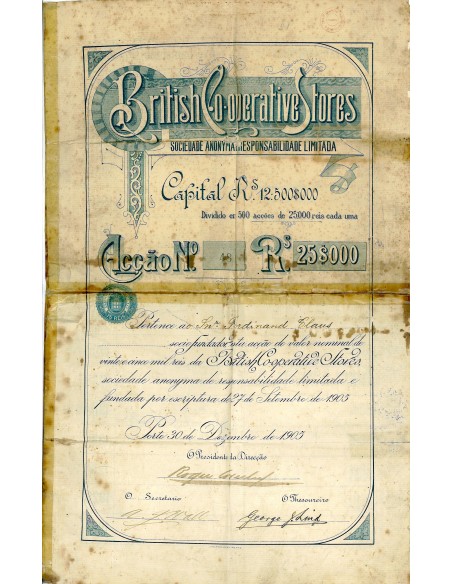 British Co-operative Stores
SOCIEDADE ANONYMA DE RESPONSABILIDADE LIMITADA
Capital Rs. 12:500$000
Dividido em 500 acções de 25,000 reis cada uma
Acção No. Rs. 25$000
Pertence ao Snr. Ferdinand Claus
socio fundador esta acção do valor nominal de
vinte e cinco mil reis da British Cooperative Stores,
sociedade anonyma de responsabilidade limitada e
fundada por escriptura de 27 de Setembro de 1905
Porto 30 de Dezembro de 1905
O Presidente da Direcção
O Secretario O Thesoureiro
George